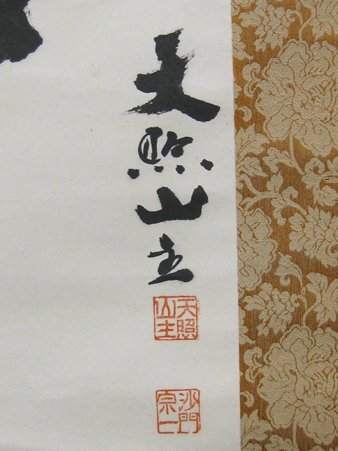 天照山主
天照山主
沙門宗一